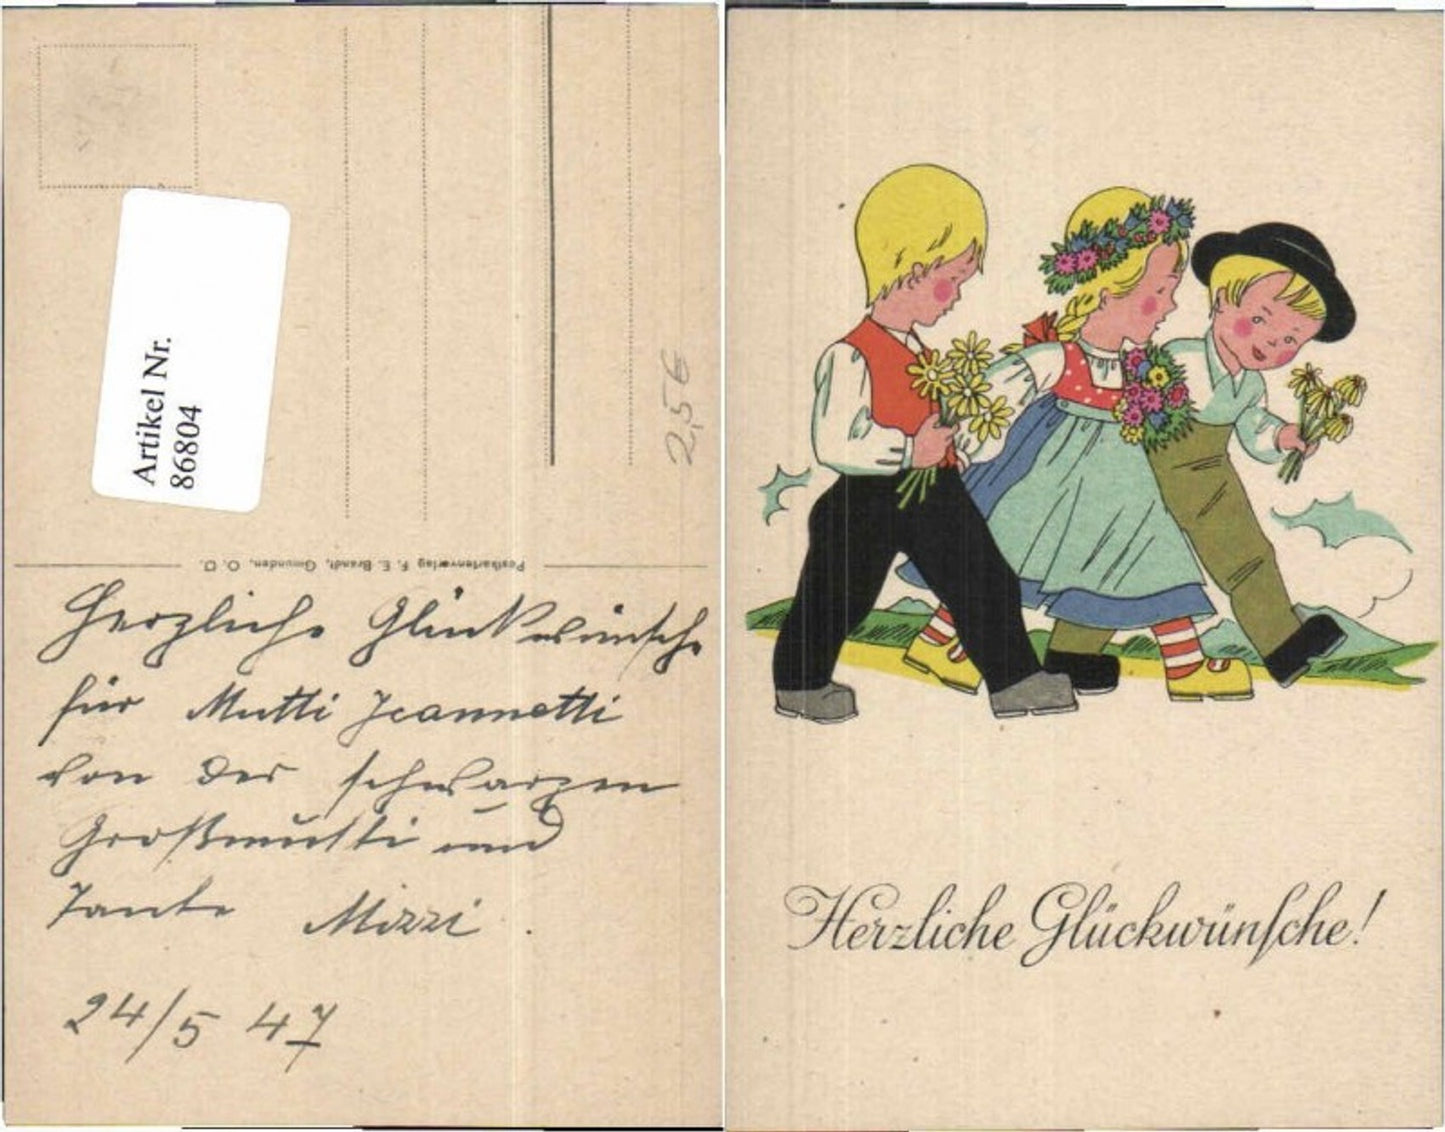 Artikel Nr.
86804
2,5€
Postkartenverlag F. E. Brandt, Gmunden, O. Ö.
Herzliche Glückwünsche
für Mutti Jeannetti
von der schwarzen
Großmutti und
Tante Mizzi.
24/5 47
Herzliche Glückwünsche!